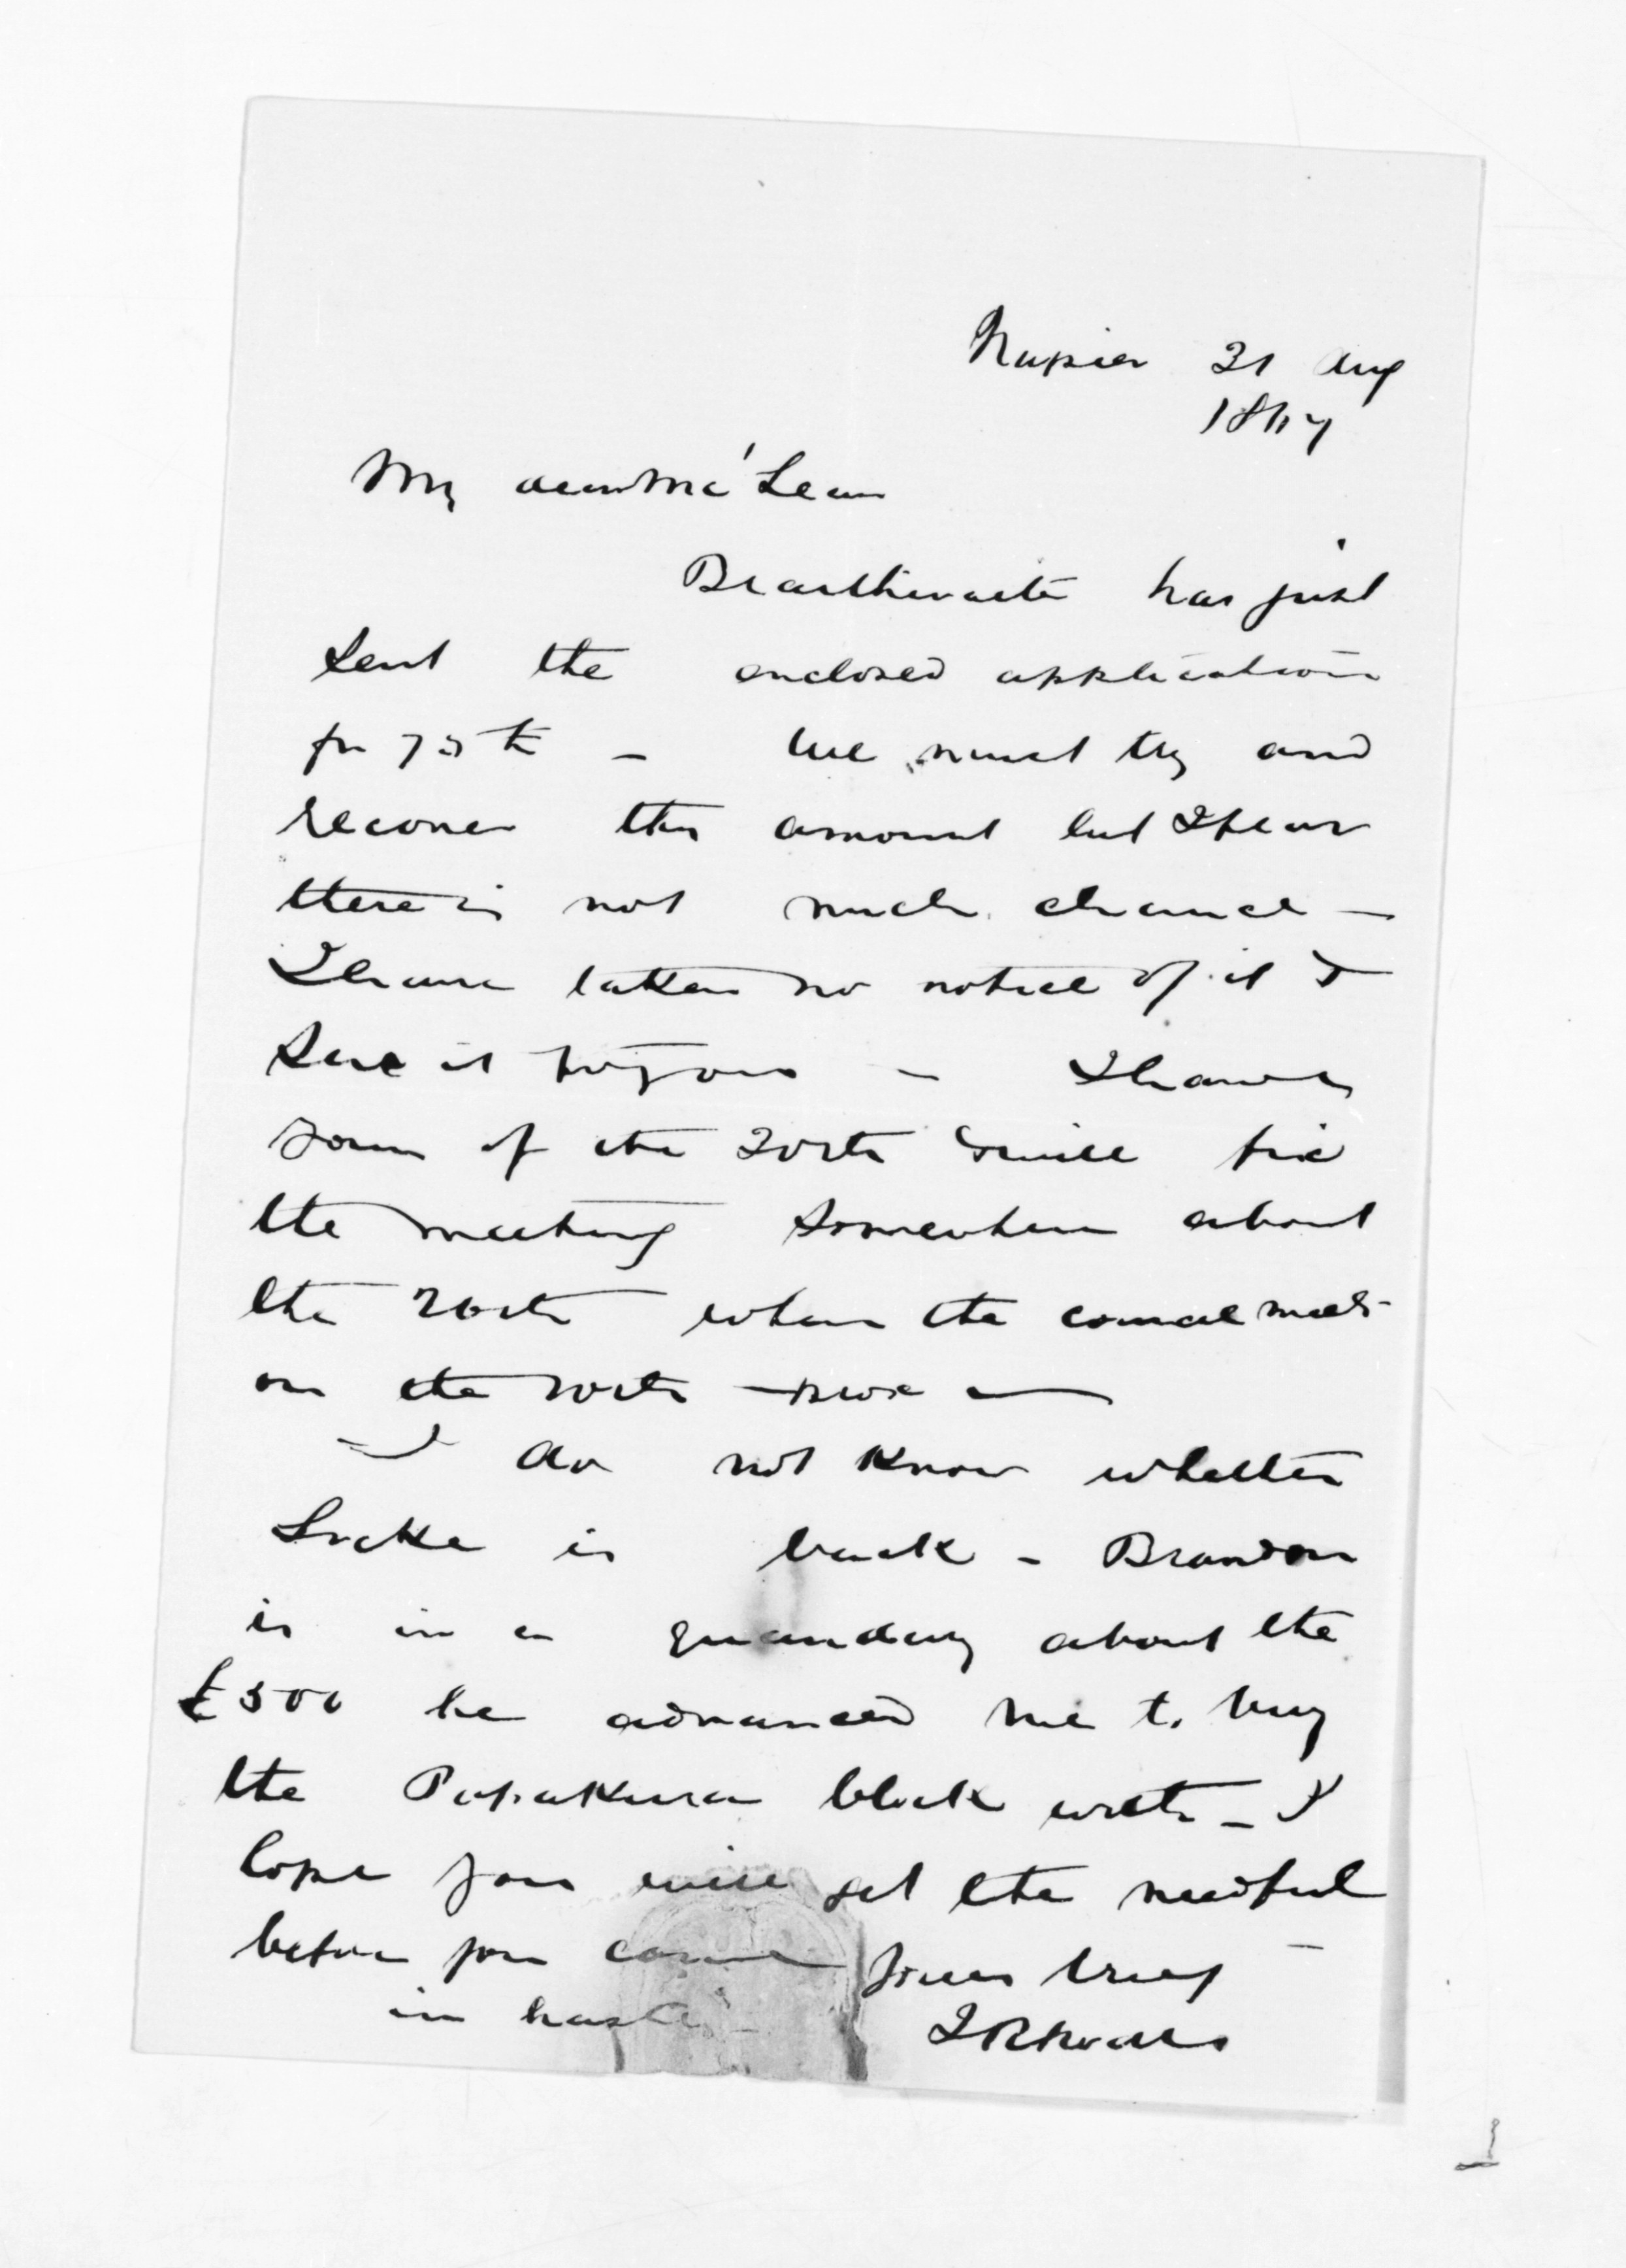 Napier 31 Aug
1867
My dear McLean
Braithwaite has just
sent the enclosed application
for 75 £ - We must try and
recover this amount but I fear
there is not much chance -
I have taken no notice of it &
send it to you - I have
yours of the 20th & will fix
the meeting somewhere about
the 26th when the council meets
on the 20th
I do not know whether
Locke is back - Brandon
is in a quandary about the
£500 he advanced me to buy
the Papakura block with - I
hope you will get the needful
before you come yours truly
in haste -